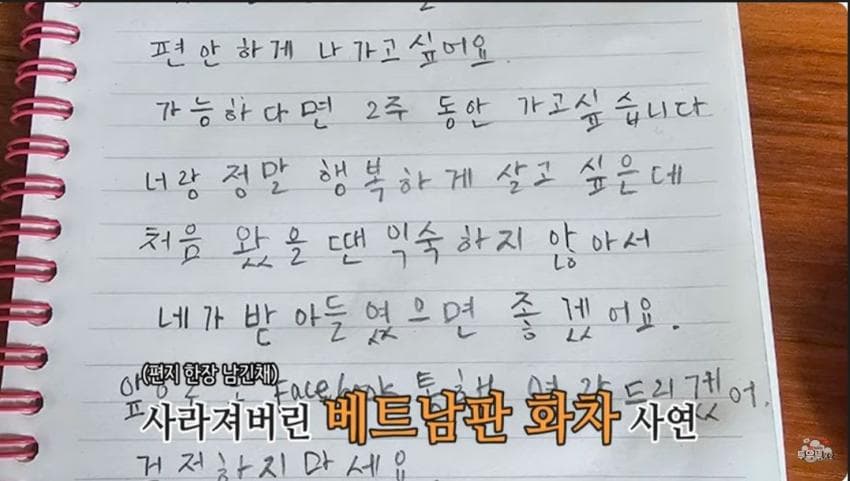 편안하게 나가고싶어요.
가능하다면 2주 동안 가고싶습니다
너랑 정말 행복하게 살고 싶은데
처음 왔을 땐 익숙하지 않아서
네가 받아들였으면 좋겠어요.
Facebook 통해
(편지 한장 남긴채)
사라져버린 베트남판 화차 사연
걱정하지마세요